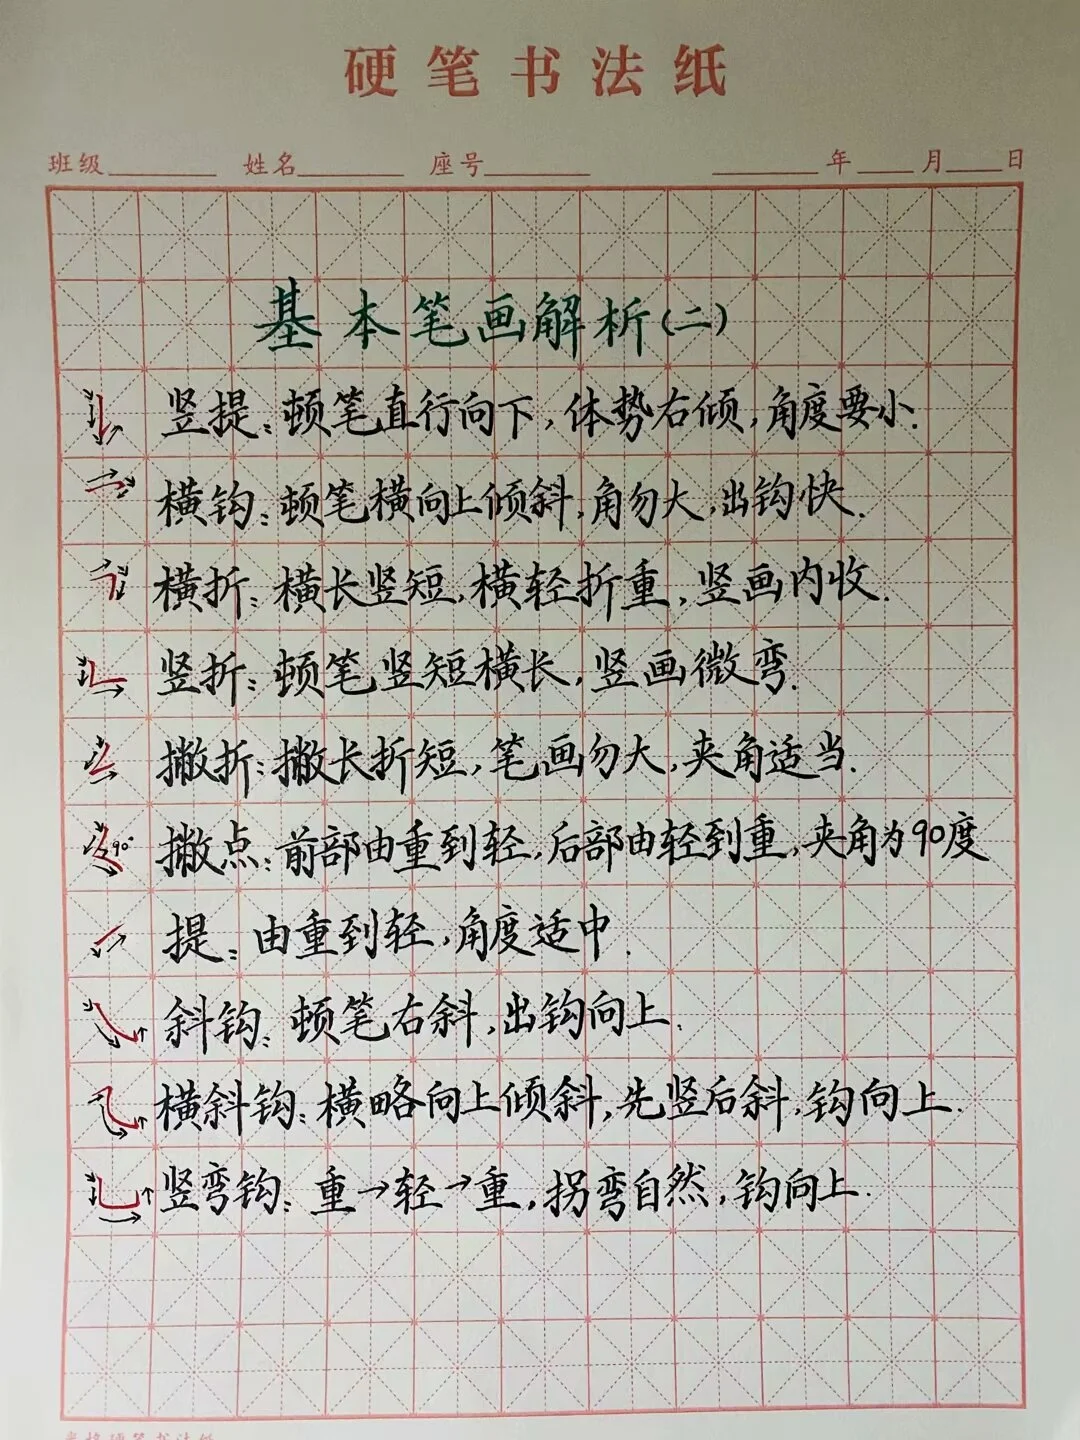 硬笔书法纸
班级 姓名 座号 年 月 日
基本笔画解析(二)
竖提:顿笔直行向下,体势右倾,角度要小.
横钩:顿笔横向上倾斜,角勿大,出钩快.
横折:横长竖短,横轻折重,竖画内收.
竖折:顿笔竖短横长,竖画微弯.
撇折:撇长折短,笔画勿大,夹角适当.
90° 撇点:前部由重到轻,后部由轻到重,夹角为90度
提:由重到轻,角度适中.
斜钩:顿笔右斜,出钩向上.
横斜钩:横略向上倾斜,先竖后斜,钩向上.
竖弯钩:重→轻→重,拐弯自然,钩向上.